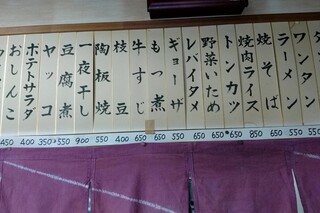 ワンタン
ラーメン
焼そば
焼肉ライス
トンカツ
野菜いため
レバイタメ
ギョーザ
もつ煮
牛すじ
枝豆
陶板焼
一夜干し
豆腐煮
ヤッコ
ポテトサラダ
おしんこ
450 400 350 550 900 550 400 450 650 550 650 650 650 850 650 550 550